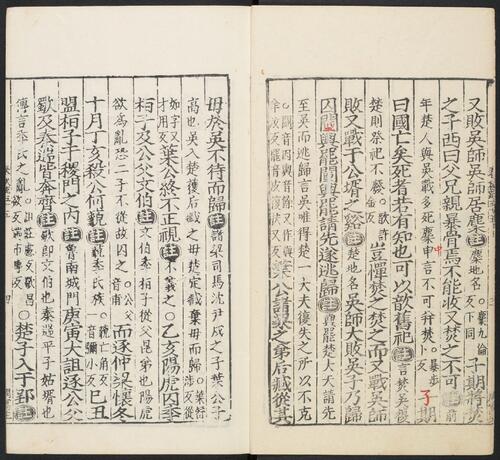 又敗吳師吳師居麇註麇地名○麇九倫反下同子期將焚
之子西曰父兄親暴骨焉不能收又焚之不可註前
年楚人與吳戰多死麇中言不可并焚○暴步卜反子期
曰國亡矣死者若有知也可以歆舊祀註言焚吳復
楚則祭祀不廢○歆許金反豈憚焚之焚之而又戰吳師
敗又戰于公壻之谿註楚地名吳師大敗吳子乃歸
囚闉輿罷闉輿罷請先遂逃歸註輿罷楚大夫請先
至吳而逃歸言吳唯得楚一大夫復失之所以不克
○闉音因輿音餘葉公諸梁之弟后臧從其
母於吳不待而歸註諸梁司馬沈尹戌之子葉公子
高也吳入楚獲后臧之母楚定臧棄母而歸○葉舒涉反從
如字又才用反葉公終不正視註不義之○乙亥陽虎囚季
桓子及公父文伯註文伯季桓子從父昆弟也陽虎
欲為亂恐二子不從故囚之○公父音甫而逐仲梁懷冬
十月丁亥殺公何藐註藐季氏族○藐亡角反一音彌小反己丑
盟桓子于稷門之內註魯南城門庚寅大詛逐公父
歜及秦遄皆奔齊註歜即文伯也秦遄平子姑壻也
傳言季氏之亂○詛莊慮反歜昌欲反遄市專反○楚子入于郢註